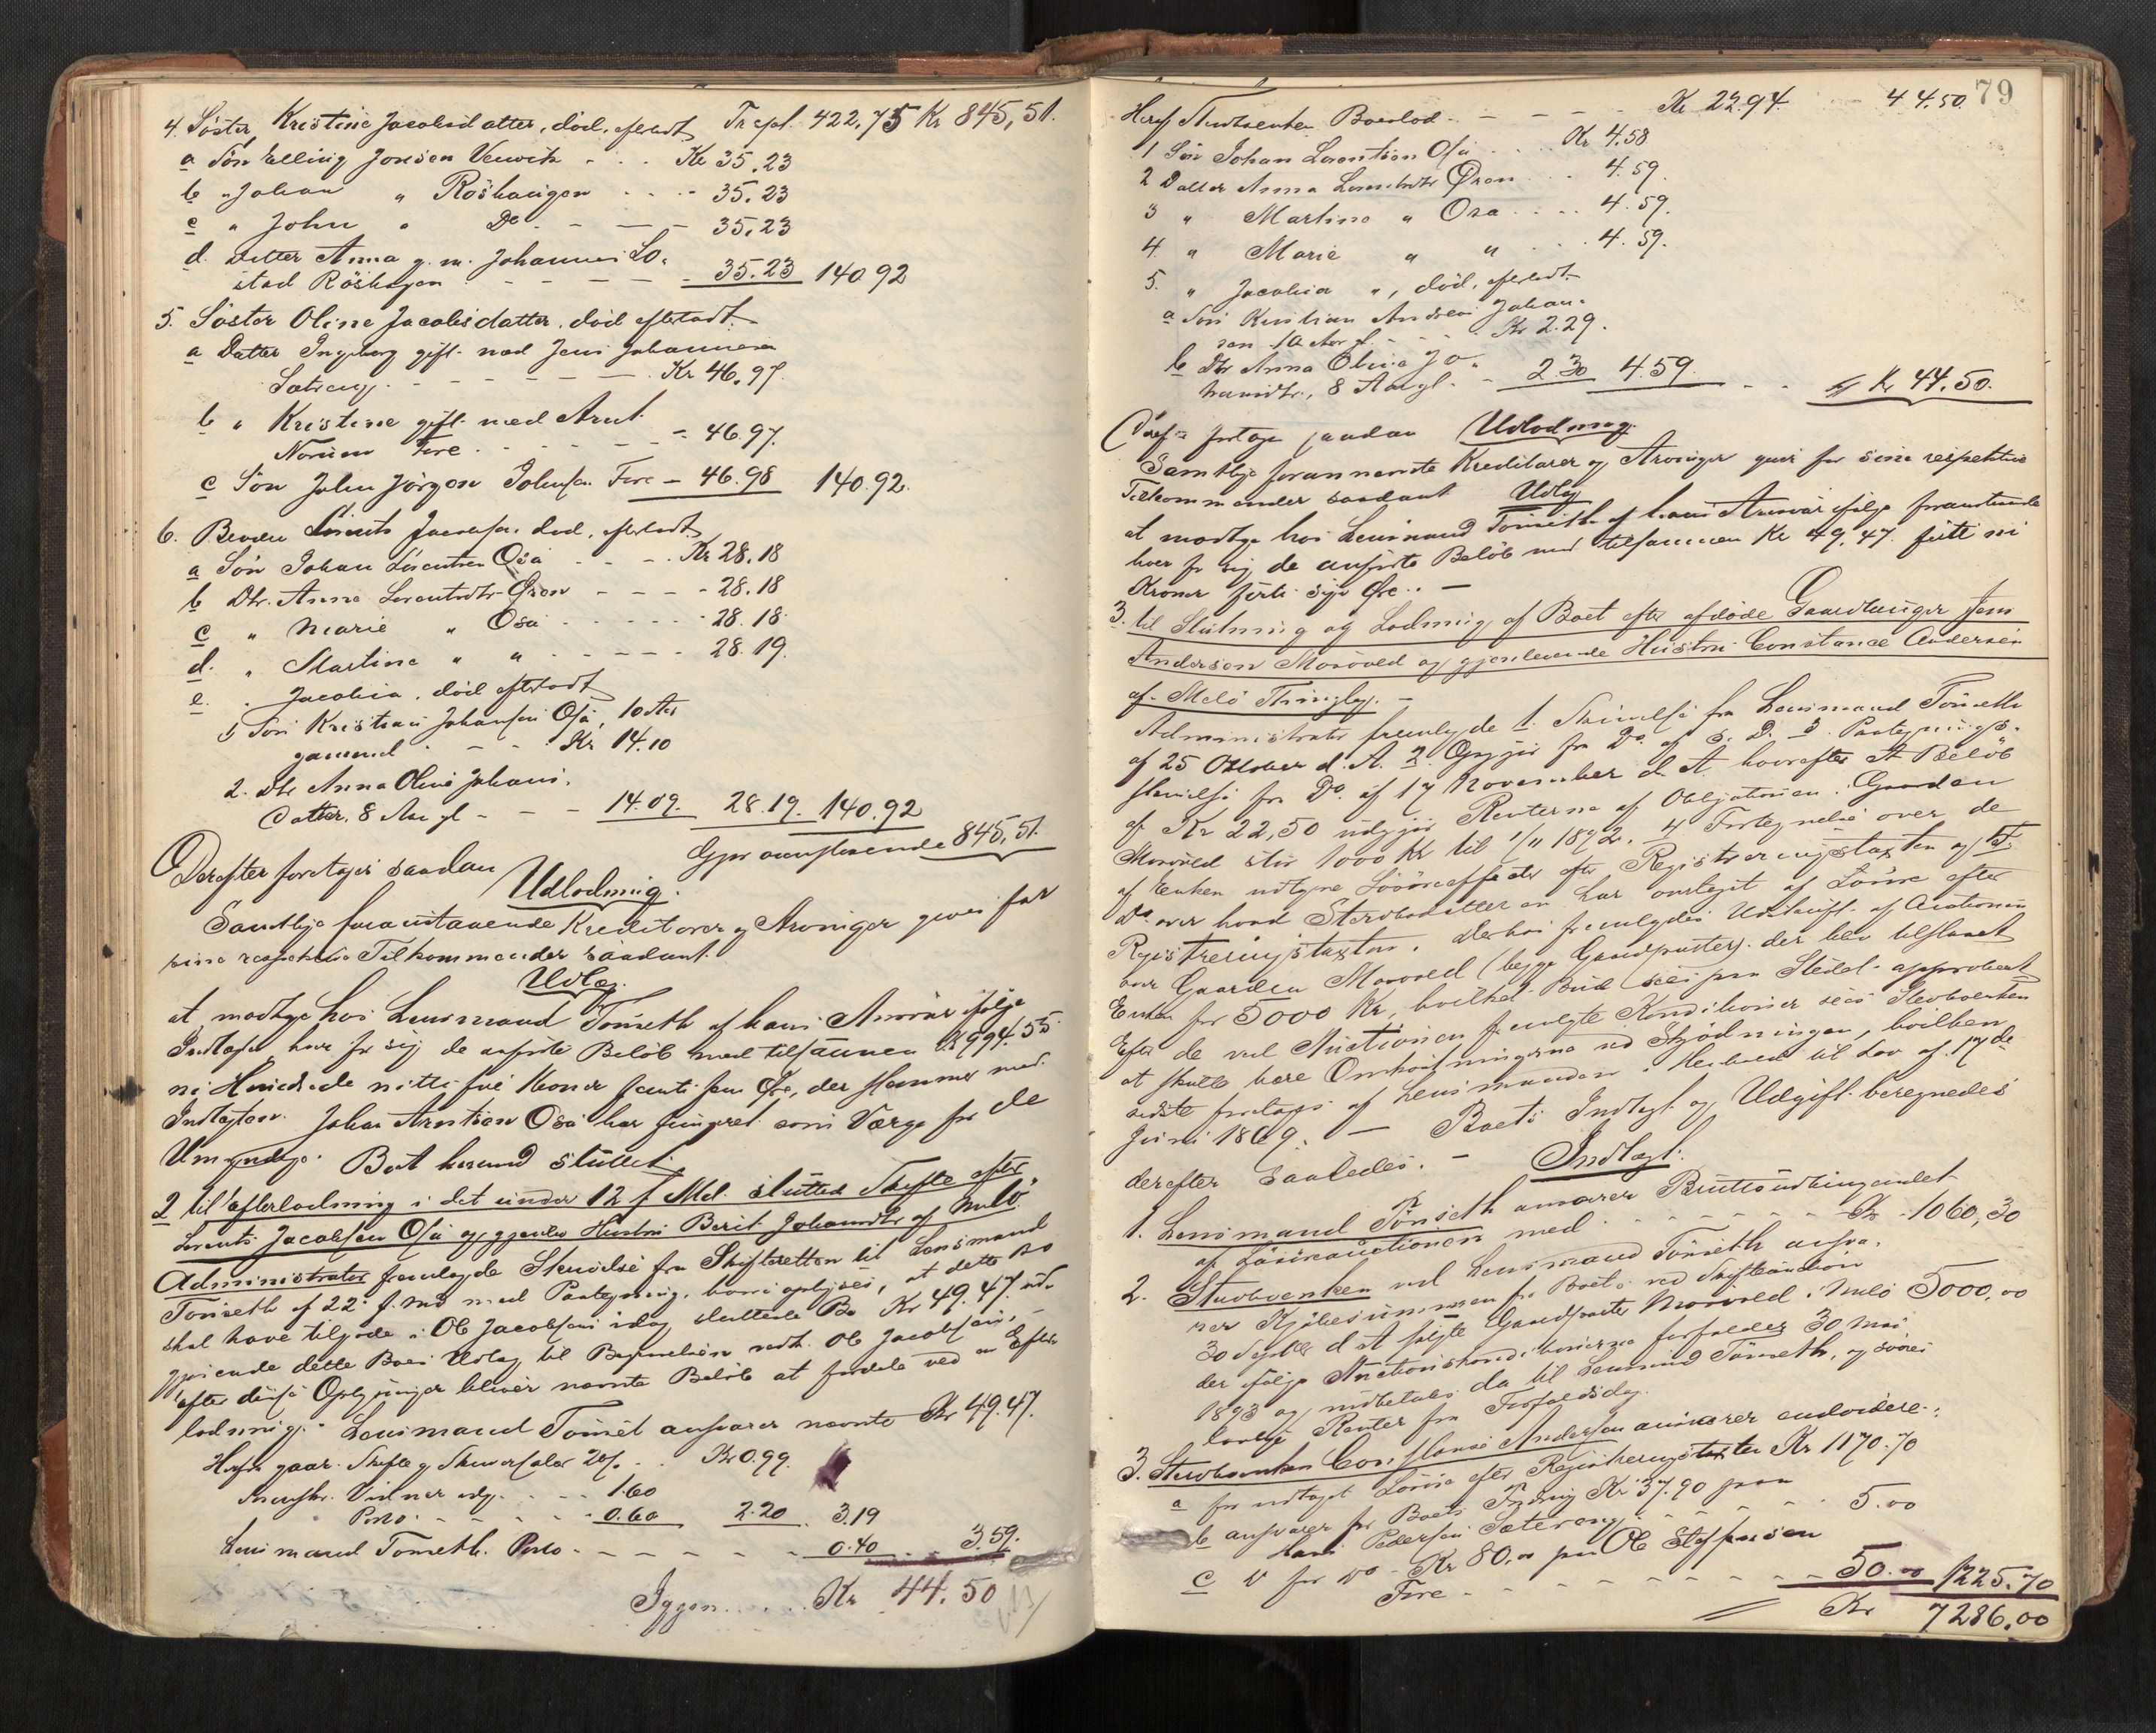 4. Söster Kristine Jacobsdatter, död, efterladt Trspt. 422,75 Kr 845,51.
a Sön Elling Jonsen Kr 35.23
b " Johan " Röshaugen 35.23
c " John " Do 35.23
d. Datter Anna g. m. Johannes Lo-
stad Röshagen 35.23 140.92
5. Söster Oline Jacobsdatter, död efterladt
a Datter Ingeborg gift med Jens Johannesen
Sætereng Kr 46.97.
b " Kristine gift med Arnt
Fire 46.97.
c Sön John Jörgen Johnsen Fire 46.98 140.92.
6. Broder Lorents Jacobsen död, efterladt
a Sön Johan Lorentsen Oså Kr 28.18
b Dtr. Anna Lorentsdtr Øren 28.18
c " Marie " Oså 28.18.
d. " Martine " " 28.19.
e. " Jacobia, död efterladt
1 Sön Kristian Johansen Oså, 10 Aar
gammel Kr 14.10
2. Dtr Anna Oline Johans-
datter, 8 Aar gl 14.09. 28.19. 140.92
Gjør ovenstaaende 845,51.
Derefter foretoges saadan
Udlodning.
Samtlige foranstaaende Kreditorer og Arvinger gives for
sine respektive Tilkommender saadant
Udlæg
at modtage hos Lensmand Tönseth af hans Ansvar ifølge
Indtægten hver for sig de anførte Beløb med tilsammen Kr 994.55.
ni Hundrede nitti fire Kroner femti fem Øre, der stemmer med
Indtægten. Johan Arntsen Oså har fungeret som Værge for de
Umyndige. Boet hermed sluttet
2 til Efterlodning i det under 12 f. Md. sluttede Skifte efter
Lorents Jacobsen Oså og gjenlev. Hustru Berit Johannesdtr af Melö
Administrator fremlagde Skrivelse fra Skifteretten til Lensmand
Tönseth af 22 f. Md med Paategning, hvori oplyses, at dette Bo
skal have tilgode i Ole Jacobsens idag sluttede Bo Kr 49.47. ud-
gjørende dette Boes Udlæg til Begravelsen vedk. Ole Jacobsen,
efter disse Oplysninger bliver nævnte Beløb at fordele ved en Efter-
lodning. Lensmand Tönset ansvarer nævnte Kr 49.47.
Herfra gaar Skifte og Skriversalær 2% Kr 0.99.
1.60
Porto 0.60 2.20 3.19
Lensmand Tönseth Porto 0.40 3.59.
Igjen Kr 44.50
79
Heraf Kr 22.94. 44.50
1 Sön Johan Lorentsen Oså Kr 4.58
2 Datter Anna Lorentsdtr Øren 4.59.
3 " Martine " Osa 4.59.
4 " Marie " " 4.59.
5. " Jacobia ", död, efterladt
a Sön Kristian Andreas Johan-
sen 10 Aar gl. Kr 2.29.
b Dtr Anna Oline Jo-
hansdtr., 8 Aar gl. 2.30 4.59. Kr 44.50.
foretoges saadan Udlodning.
Samtlige forannævnte Kreditorer og Arvinger gives for sine respektive
Tilkommender saadant Udlæg
at modtage hos Lensmand Tönseth af hans Ansvar ifølge foranstaaende
hver for sig de anførte Beløb med tilsammen Kr 49.47. firti ni
Kroner firti syv Øre. —
3. til Slutning og Lodning af Boet efter afdøde Gaardbruger Jens
Andersen Moröved og gjenlevende Hustru Constance Andersen
af Melö Thinglag. —
Administrator fremlagde 1. Skrivelse fra Lensmand Tönseth
af 25 Oktober d. A. 2. Opgjør fra Do af s. D. 3. Paategnings-
skrivelse fra Do af 17 November d. A. hvorefter et Beløb
af Kr 22,50 udgjør Renterne af Obligationen Gaarden
Moröved stor 1000 Kr til 1/11 1892. 4 Fortegnelse over de
af Enken udtagne Løsøreeffekter efter Registreringstaxten og 5.
Do over hvad Stervbodatteren har overtaget af Løsøre efter
Registreringstaxten. Derhos fremlagdes Udskrift af Auctionen
over Gaarden Moröved (begge Gaardparter), der blev tilslaaet
Enken for 5000 Kr, hvilket Bud sees paa Stedet approberet
Efter de ved Auctionen fremlagte Konditioner sees Stervboenken
at skulle bære Omkostningerne ved Skjødningen, hvilken
sidste foretages af Lensmanden. Henhold til Lov af 17de
Juni 1869. — Boets Indtægt og Udgift beregnedes
derefter saaledes. — Indtægt.
1. Lensmand Tönseth ansvarer Bruttoudbringendet
af Løsøreauctionen med Kr 1060,30
2. Stervboenken ved Lensmand Tönseth ansva-
rer Kjøbesummen for Boets ved Skifteauction
30 Septbr d. A. solgte Gaardparter Moröved i Melö 5000,00
der ifølge Auctionskonditionerne forfalder 30 Mai
1893 og indbetales da til Lensmand Tönseth, og svares
lovlige Renter fra Forfaldsdag.
3. Stervboenken Constance Andersen ansvarer endvidere:
a for udtaget Løsøre efter Registreringstaxten Kr 1170.70
b ansvarer for Boets Fordring Kr 37.90 paa
Hans Pedersen Sætereng 5.00
c D for Do - Kr 80.00 paa Ole Steffensen
Fire 50.00 1225.70
Kr 7286.00